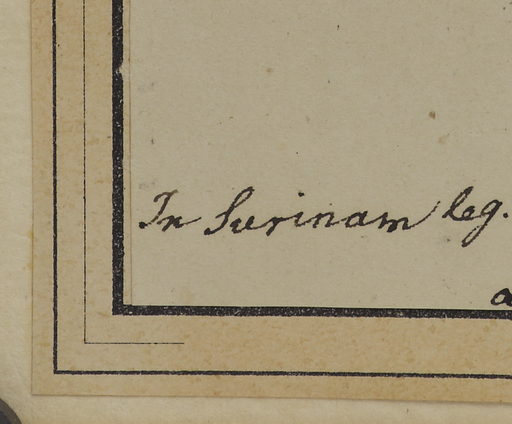 In Surinam leg.
a